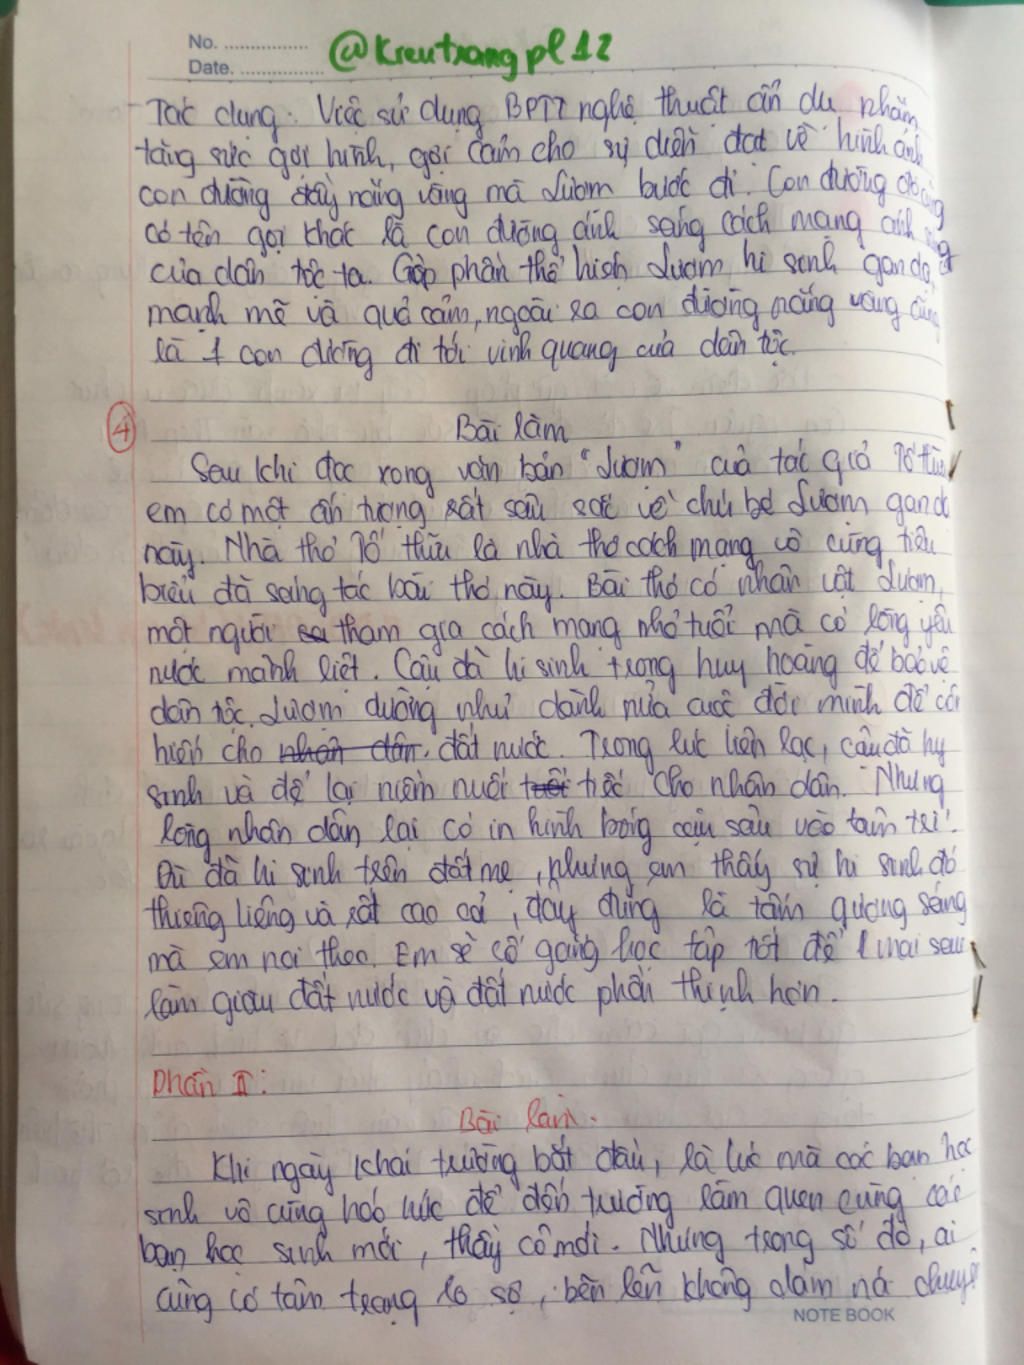 No. ................
Date. ................
@Kreutrangpl12
- Tác dụng: Việc sử dụng BPTT nghệ thuật ẩn dụ nhằm
tăng sức gợi hình, gợi cảm cho sự diễn đạt về hình ảnh
con đường đầy nắng vàng mà Lượm bước đi. Con đường đó cũng
có tên gọi khác là con đường ánh sáng cách mạng anh
của dân tộc ta. Góp phần thể hiện Lượm hi sinh gan dạ,
mạnh mẽ và quả cảm, ngoài ra con đường nắng vàng cũng
là 1 con đường đi tới vinh quang của dân tộc.
4 Bài làm
Sau khi đọc xong văn bản "Lượm" của tác giả Tố Hữu
em có một ấn tượng rất sâu sắc về chú bé Lượm gan dạ
này. Nhà thơ Tố Hữu là nhà thơ cách mạng vô cùng tiêu
biểu đã sáng tác bài thơ này. Bài thơ có nhân vật Lượm,
một người tham gia cách mạng nhỏ tuổi mà có lòng yêu
nước mãnh liệt. Cậu đã hi sinh trong huy hoàng để bảo vệ
dân tộc. Lượm dường như dành nửa cuộc đời mình để cố
hiến cho nhân dân. đất nước. Trong lúc liên lạc, cậu đã hy
sinh và để lại niềm nuối tiếc cho nhân dân. Nhưng
lòng nhân dân lại có in hình bóng cậu sâu vào tâm trí.
Dù đã hi sinh trên đất mẹ, nhưng em thấy sự hi sinh đó
thiêng liêng và rất cao cả, đay đúng là tấm gương sáng
mà em noi theo. Em sẽ cố gắng học tập tốt để mai sau
làm giàu đất nước và đất nước phồn thịnh hơn.
Phần II:
Bài làm.
Khi ngày khai trường bắt đầu, là lúc mà các bạn học
sinh vô cùng háo hức để đến trường làm quen cùng các
bạn học sinh mới, thầy cô mới. Nhưng trong số đó, ai
cũng có tâm trạng lo sợ, bẽn lẽn không dám nói chuyện
NOTE BOOK